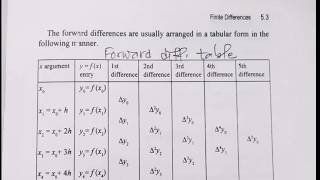 Finite Differences 5.3
The forward differences are usually arranged in a tabular form in the
following manner.
Forward diff. table
x argument y = f(x) entry 1st difference 2nd difference 3rd difference 4th difference 5th difference
x₀ y₀ = f(x₀)
Δy₀
x₁ = x₀ + h y₁ = f(x₁) Δ²y₀
Δy₁ Δ³y₀
x₂ = x₀ + 2h y₂ = f(x₂) Δ²y₁ Δ⁴y₀
Δy₂ Δ³y₁ Δ⁵y₀
x₃ = x₀ + 3h y₃ = f(x₃) Δ²y₂ Δ⁴y₁
Δy₃ Δ³y₂
x₄ = x₀ + 4h y₄ = f(x₄)